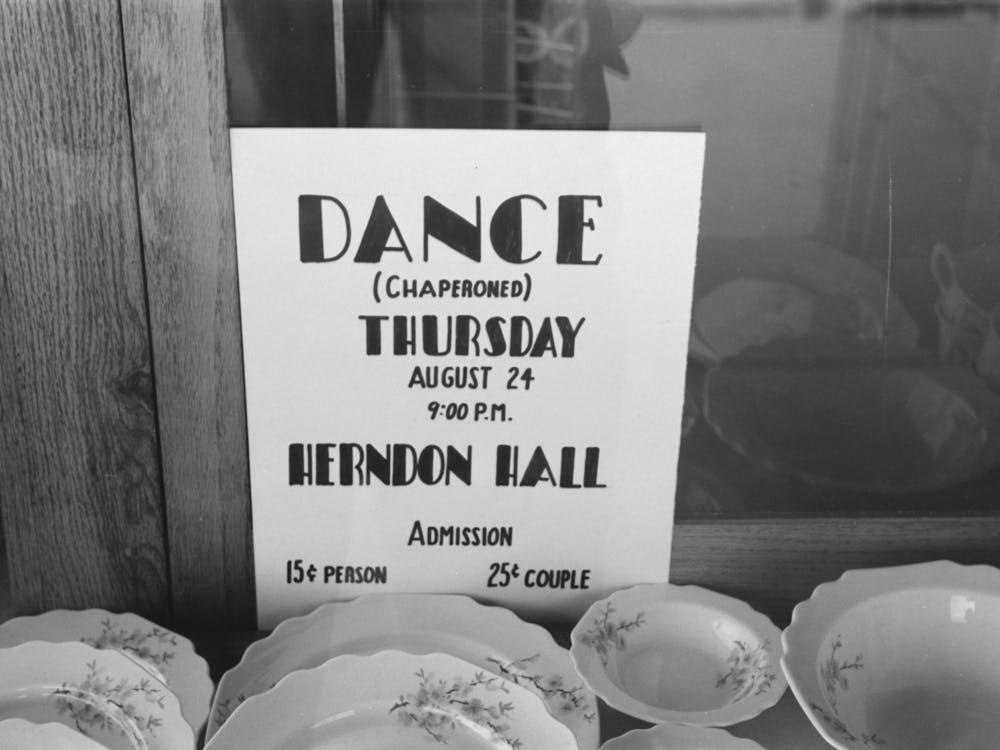 DANCE
(CHAPERONED)
THURSDAY
AUGUST 24
9:00 P.M.
HERNDON HALL
ADMISSION
15¢ PERSON 25¢ COUPLE